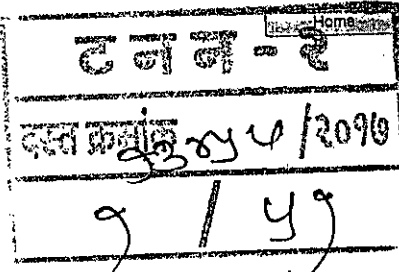 Home
ट न न -
दस्त क्रमांक /२०१७
१ / ५१